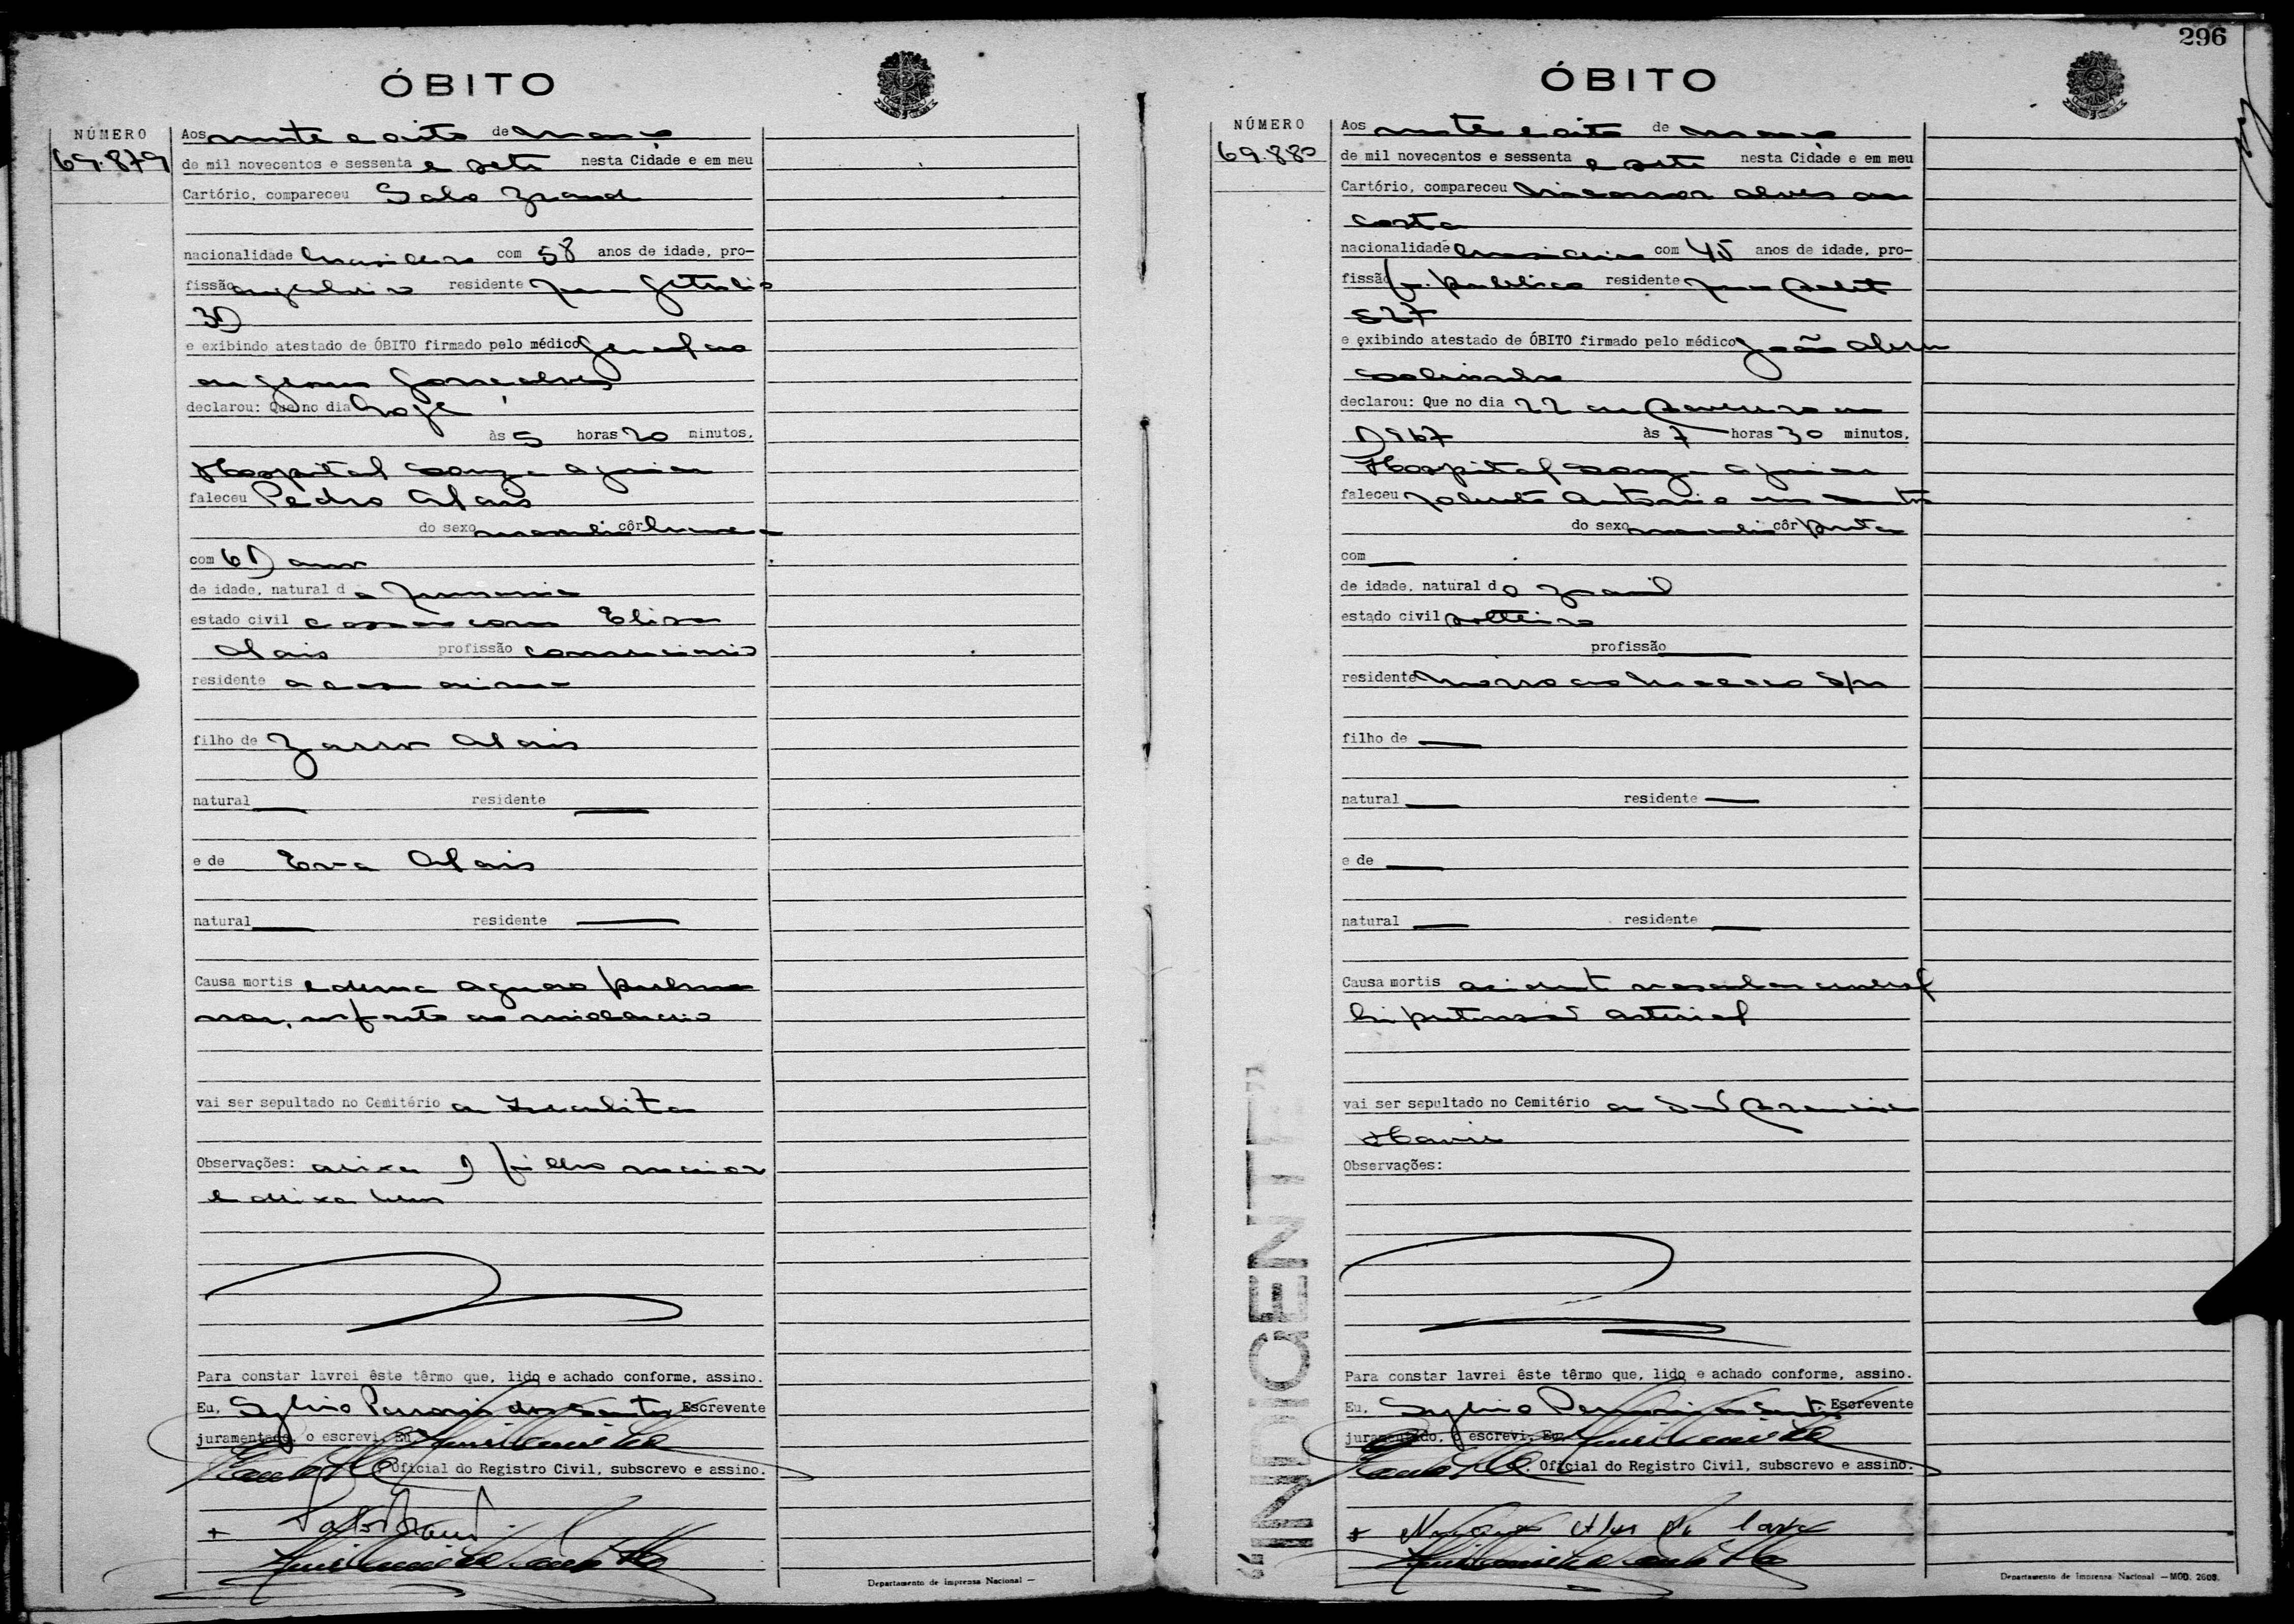 296
ÓBITO
NÚMERO
69.879
Aos vinte e oito de março
de mil novecentos e sessenta e sete nesta Cidade e em meu
Cartório, compareceu Salo Brand
nacionalidade brasileira com 58 anos de idade, pro-
fissão engenheiro residente rua Getulio
31
e exibindo atestado de ÓBITO firmado pelo médico
de Jesus Gonçalves
declarou: Que no dia hoje
às 5 horas 20 minutos,
Hospital Souza Aguiar
faleceu Pedro Alais
do sexo masculino côr branca
com 61 anos
de idade, natural da Rumania
estado civil casado com Elisa
Alais profissão comerciario
residente a casa acima
filho de Alais
natural — residente —
e de Eva Alais
natural — residente —
Causa mortis edema agudo pulmo
nar, infarto do miocardio
vai ser sepultado no Cemitério de Israelita
Observações: deixa 1 filho maior
e deixa bens
Para constar lavrei êste têrmo que, lido e achado conforme, assino.
Eu, Sylvio dos Santos Escrevente
juramentado, o escrevi. Eu
Oficial do Registro Civil, subscrevo e assino.
+ Salo Brand
Departamento de Imprensa Nacional —
ÓBITO
NÚMERO
69.880
Aos vinte e oito de março
de mil novecentos e sessenta e sete nesta Cidade e em meu
Cartório, compareceu Nicanor Alves da
Costa
nacionalidade brasileira com 45 anos de idade, pro-
fissão f. publico residente rua
527
e exibindo atestado de ÓBITO firmado pelo médico João
declarou: Que no dia 22 de fevereiro de
1967 às 7 horas 30 minutos,
Hospital Souza Aguiar
faleceu Antonio dos Santos
do sexo masculino côr preta
com —
de idade, natural do Brasil
estado civil solteiro
profissão —
residente Morro do Macaco S/n
filho de —
natural — residente —
e de —
natural — residente —
Causa mortis acidente vascular cerebral
hipertensão arterial
vai ser sepultado no Cemitério de São Francisco
Xavier
Observações:
Para constar lavrei êste têrmo que, lido e achado conforme, assino.
Eu, Sylvio dos Santos Escrevente
juramentado, o escrevi. Eu
Oficial do Registro Civil, subscrevo e assino.
+ Nicanor Alves da Costa
"INDIGENTE"
Departamento de Imprensa Nacional — MOD. 2609.